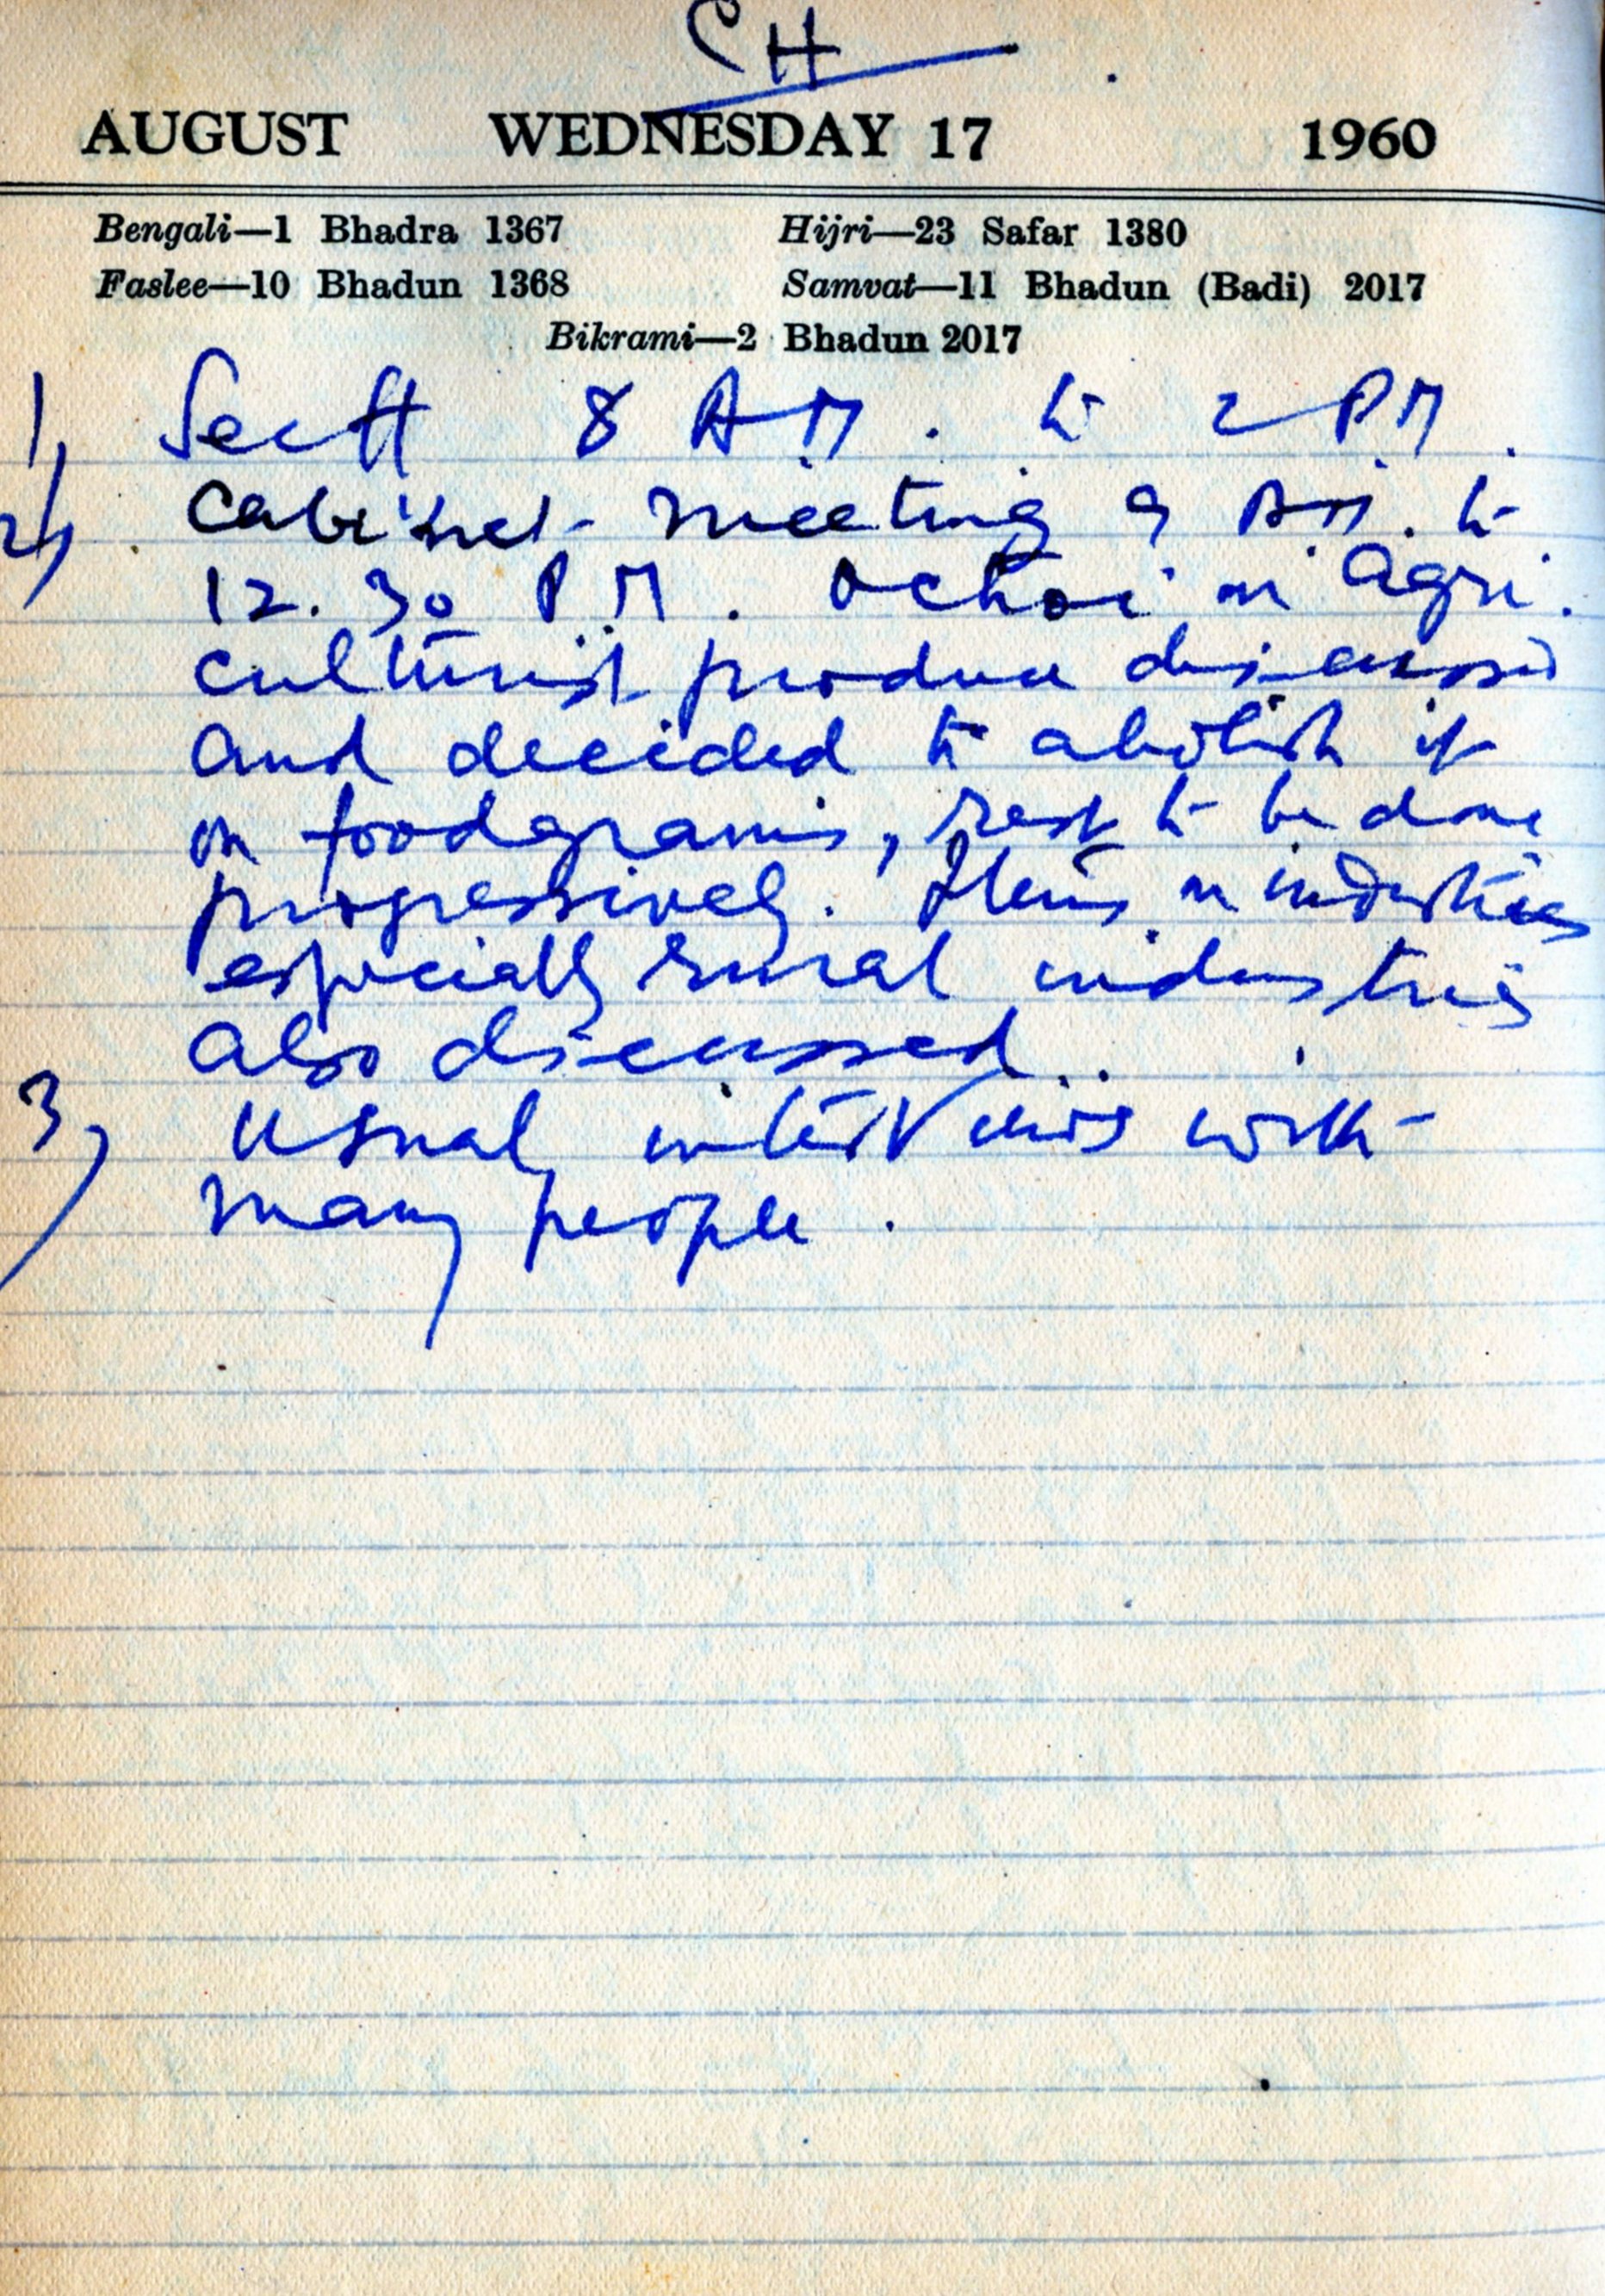 CH
AUGUST WEDNESDAY 17 1960
Bengali—1 Bhadra 1367 Hijri—23 Safar 1380
Faslee—10 Bhadun 1368 Samvat—11 Bhadun (Badi) 2017
Bikrami—2 Bhadun 2017
1) Sectt 8 AM. to 2 PM.
2) Cabinet meeting 9 AM. to
12.30 P.M. Octroi on Agri.
culturist produce discussed
and decided to abolish it
on foodgrains, rest to be done
progressively. Items on industries
especially rural industries
also discussed.
3) Usual interviews with
many people.